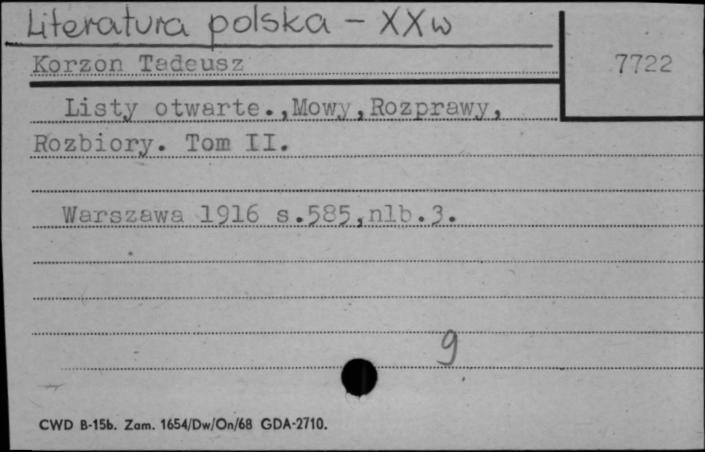 Literatura polska - XXw
Korzon Tadeusz
7722
Listy otwarte.,Mowy,Rozprawy,
Rozbiory. Tom II.
Warszawa 1916 s.585,nlb.3.
9
CWD B-15b. Zam. 1654/Dw/On/68 GDA-2710.